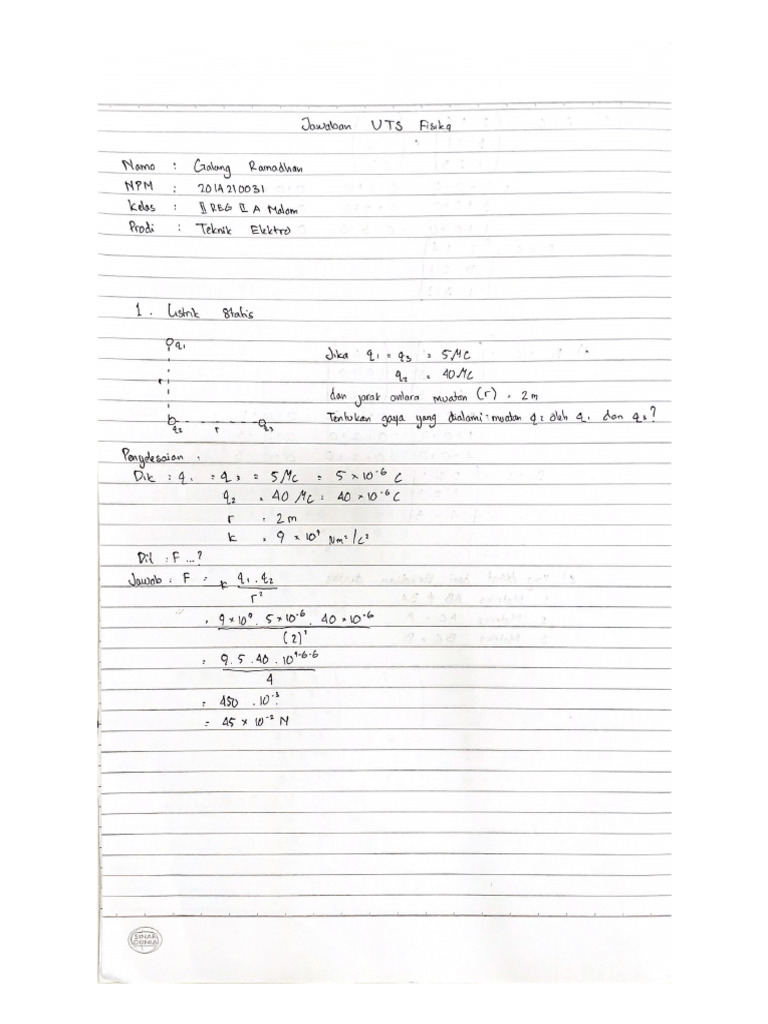 Jawaban UTS Fisika
Nama : Galang Ramadhan
NPM : 2014210031
Kelas : II REG II A Malam
Prodi : Teknik Elektro
1. Listrik Statis
q₁
r
q₂ r q₃
Jika q₁ = q₃ = 5 μC
q₂ = 40 μC
dan jarak antara muatan (r) = 2 m
Tentukan gaya yang dialami muatan q₂ oleh q₁ dan q₃?
Penyelesaian :
Dik : q₁ = q₃ = 5 μC = 5 × 10⁻⁶ C
q₂ = 40 μC = 40 × 10⁻⁶ C
r = 2 m
k = 9 × 10⁹ Nm²/C²
Dit : F ...?
Jawab : F = k q₁ . q₂
r²
= 9 × 10⁹ . 5 × 10⁻⁶ . 40 × 10⁻⁶
(2)²
= 9 . 5 . 40 . 10⁹⁻⁶⁻⁶
4
= 450 . 10⁻³
= 45 × 10⁻² N
SINAR
DUNIA